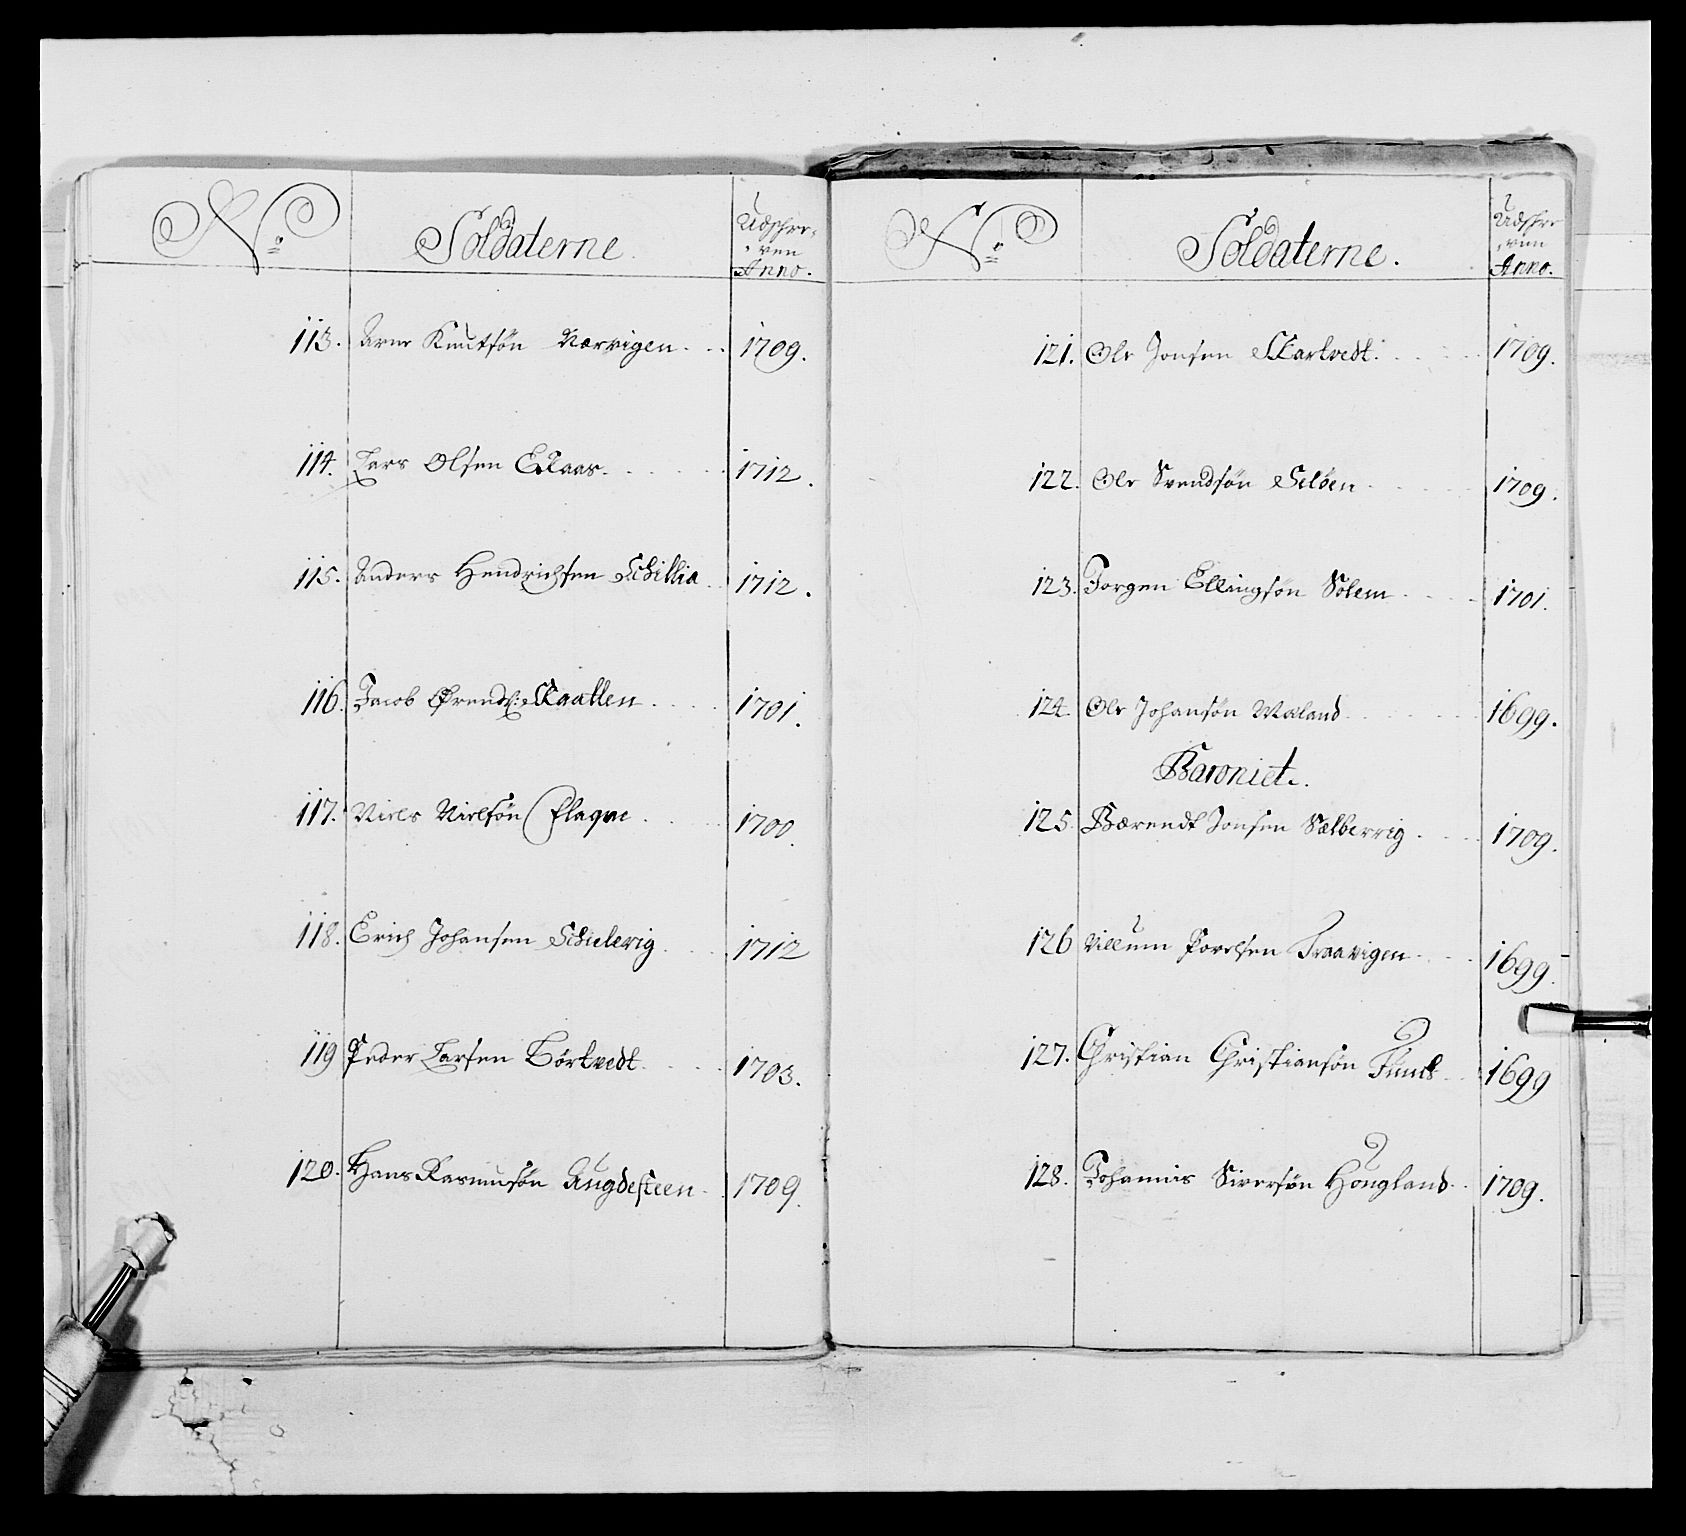 No
Soldaterne.
Udschre-
ven
Anno.
113. Arne Knutsøn Nærvigen 1709.
114. Lars Olsen Eckaas 1712.
115. Anders Hendrichsen Schillia 1712.
116. Jacob Ørends: Skaatten 1701.
117. Niels Nielsøn Flaqve 1700.
118. Erich Johansen Schielevig 1712
119 Peder Larsen Børtvedt 1703.
120. Hans Rasmusøn Augdesteen 1709.
No
Soldaterne.
Udschre
ven
Anno.
121. Ole Jonsen Skartvedt. 1709.
122. Ole Svendsøn Seløen 1709.
123. Jørgen Ellingsøn Solem 1701.
124. Ole Johansøn Waland 1699.
Baroniet.
125. Bærendt Jonsen Sælberrig 1709.
126 Villum Povelsen Traavigen 1699.
127. Christian Christiansøn 1699
128. Johannis Siversøn Hougland 1709.